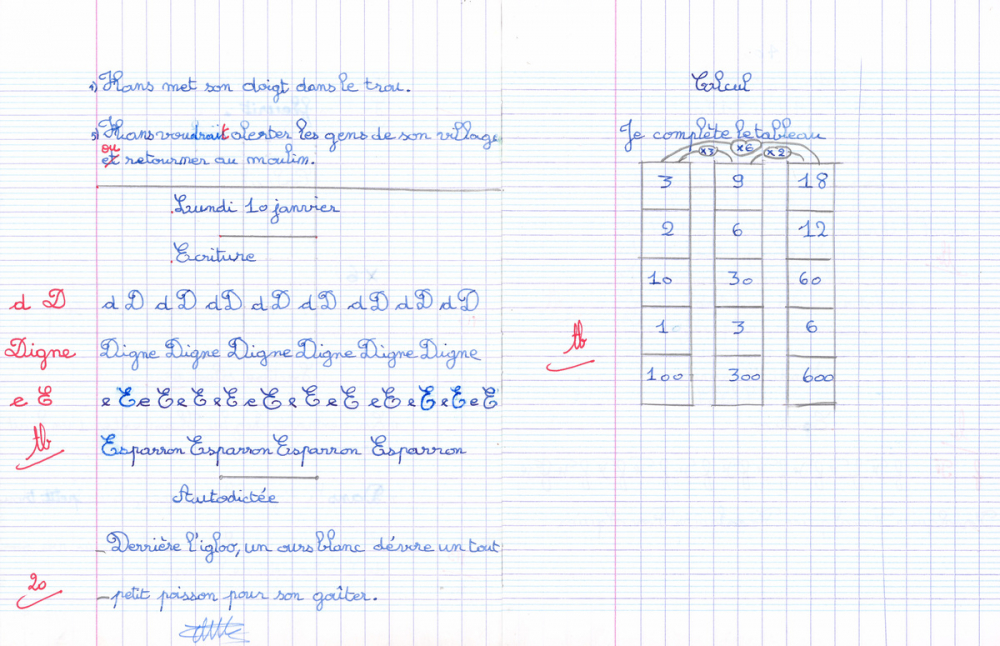 4) Hans met son doigt dans le trou.
5) Hans voudrait alerter les gens de son village
ou
et retourner au moulin.
Lundi 10 janvier
Ecriture
d D d D d D d D d D d D d D d D d D
Digne Digne Digne Digne Digne Digne Digne
e E e E e E e E e E e E e E e E e E e E e E
tb Esparron Esparron Esparron Esparron
Autodictée
_ Derrière l'igloo, un ours blanc dévore un tout
20 _ petit poisson pour son goûter.
Calcul
Je complète le tableau
x3 x6 x2
3 9 18
2 6 12
10 30 60
1 3 6
tb
100 300 600